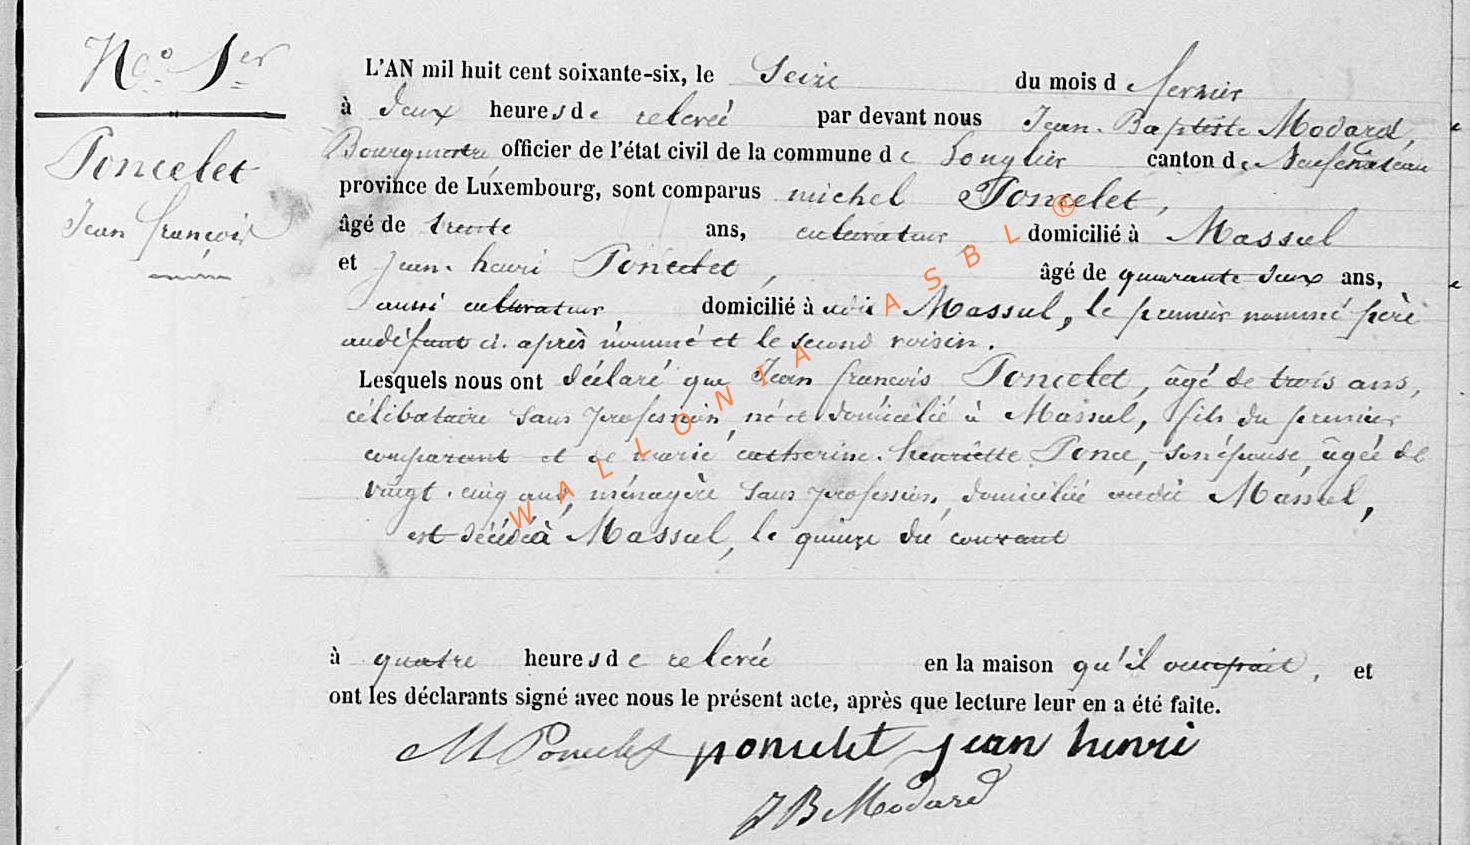 No 1er
Poncelet
Jean françois
L'AN mil huit cent soixante-six, le Seize du mois d fevrier
à deux heures de relevée par devant nous Jean-Baptiste Modard,
Bourgmestre, officier de l'état civil de la commune de Longlier canton de Neufchateau
province de Luxembourg, sont comparus michel Poncelet,
âgé de trente ans, cultivateur domicilié à Massul
et Jean-henri Poncelet, âgé de quarante deux ans,
aussi cultivateur, domicilié à Massul, le premier nommé père
audéfunt ci-après nommé et le second voisin.
Lesquels nous ont déclaré que Jean françois Poncelet, âgé de trois ans,
célibataire sans profession, né et domicilié à Massul, fils du premier
comparant et de marie catherine henriette Ponce, son épouse, âgée de
vingt-cinq ans, ménagère sans profession, domiciliée audit Massul,
est décédé à Massul, le quinze du courant
à quatre heures de relevée en la maison qu'il occupait, et
ont les déclarants signé avec nous le présent acte, après que lecture leur en a été faite.
M Poncelet poncelet jean henri
JB Modard
WALLONIA ASBL ®